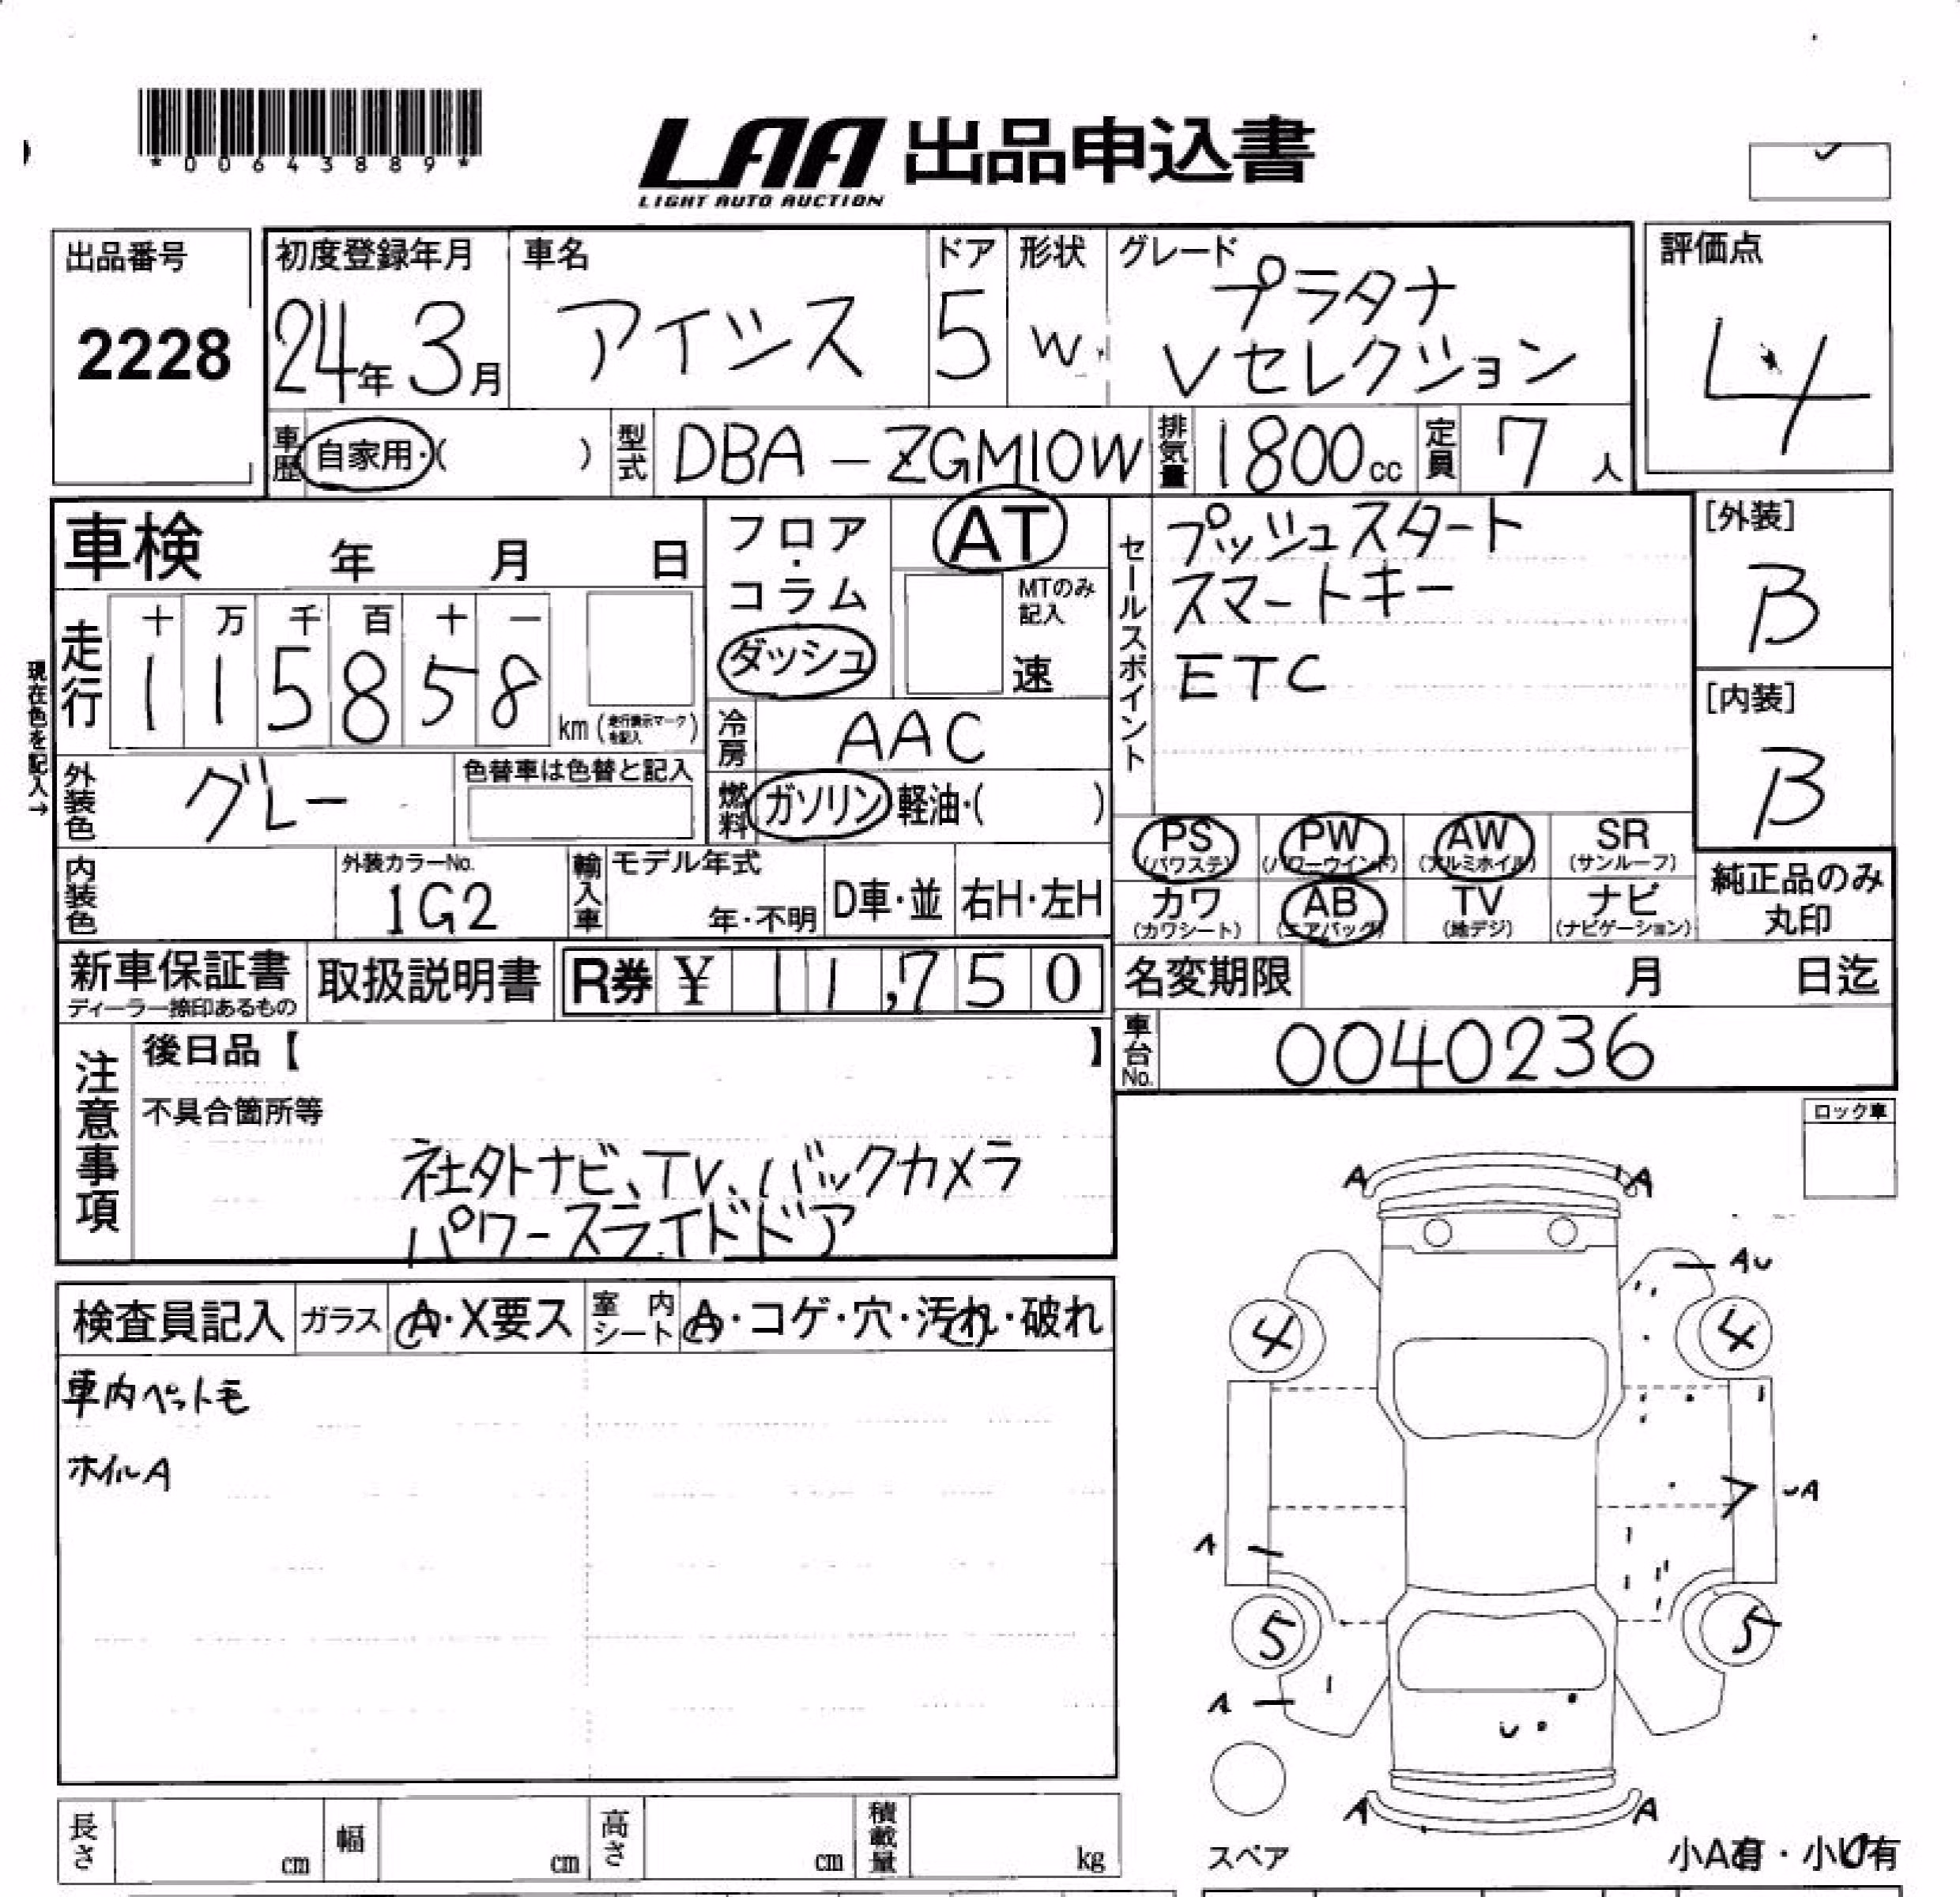 *00643889*
LAA 出品申込書
LIGHT AUTO AUCTION
出品番号
2228
初度登録年月
24年3月
車名
アイシス
ドア
5
形状
W
グレード
プラタナ
Vセレクション
評価点
4
車歴
自家用・( )
型式
DBA-ZGM10W
排気量
1800cc
定員
7人
車検 年 月 日
フロア・コラム
ダッシュ
AT
MTのみ記入
速
セールスポイント
プッシュスタート
スマートキー
ETC
[外装]
B
[内装]
B
現在色を記入→
走行
十 万 千 百 十 一
1 1 5 8 5 8
km(走行表示マークを記入)
冷房
AAC
燃料
ガソリン 軽油・( )
外装色
グレー
色替車は色替と記入
PS
(パワステ)
PW
(パワーウインド)
AW
(アルミホイル)
SR
(サンルーフ)
カワ
(カワシート)
AB
(エアバッグ)
TV
(地デジ)
ナビ
(ナビゲーション)
純正品のみ
丸印
内装色
外装カラーNo.
1G2
輸入車
モデル年式
年・不明
D車・並
右H・左H
新車保証書
ディーラー捺印あるもの
取扱説明書
R券 ¥ 11,750
名変期限 月 日迄
車台No.
0040236
注意事項
後日品【 】
不具合箇所等
社外ナビ、TV、バックカメラ
パワースライドドア
ロック車
検査員記入
ガラス
A・X要ス
室内シート
A・コゲ・穴・汚れ・破れ
車内ペット毛
ホイルA
A A
AU
4 4
UA
A
5 5
A
U
A A
スペア
小A有・小U有
長さ cm
幅 cm
高さ cm
積載量 kg